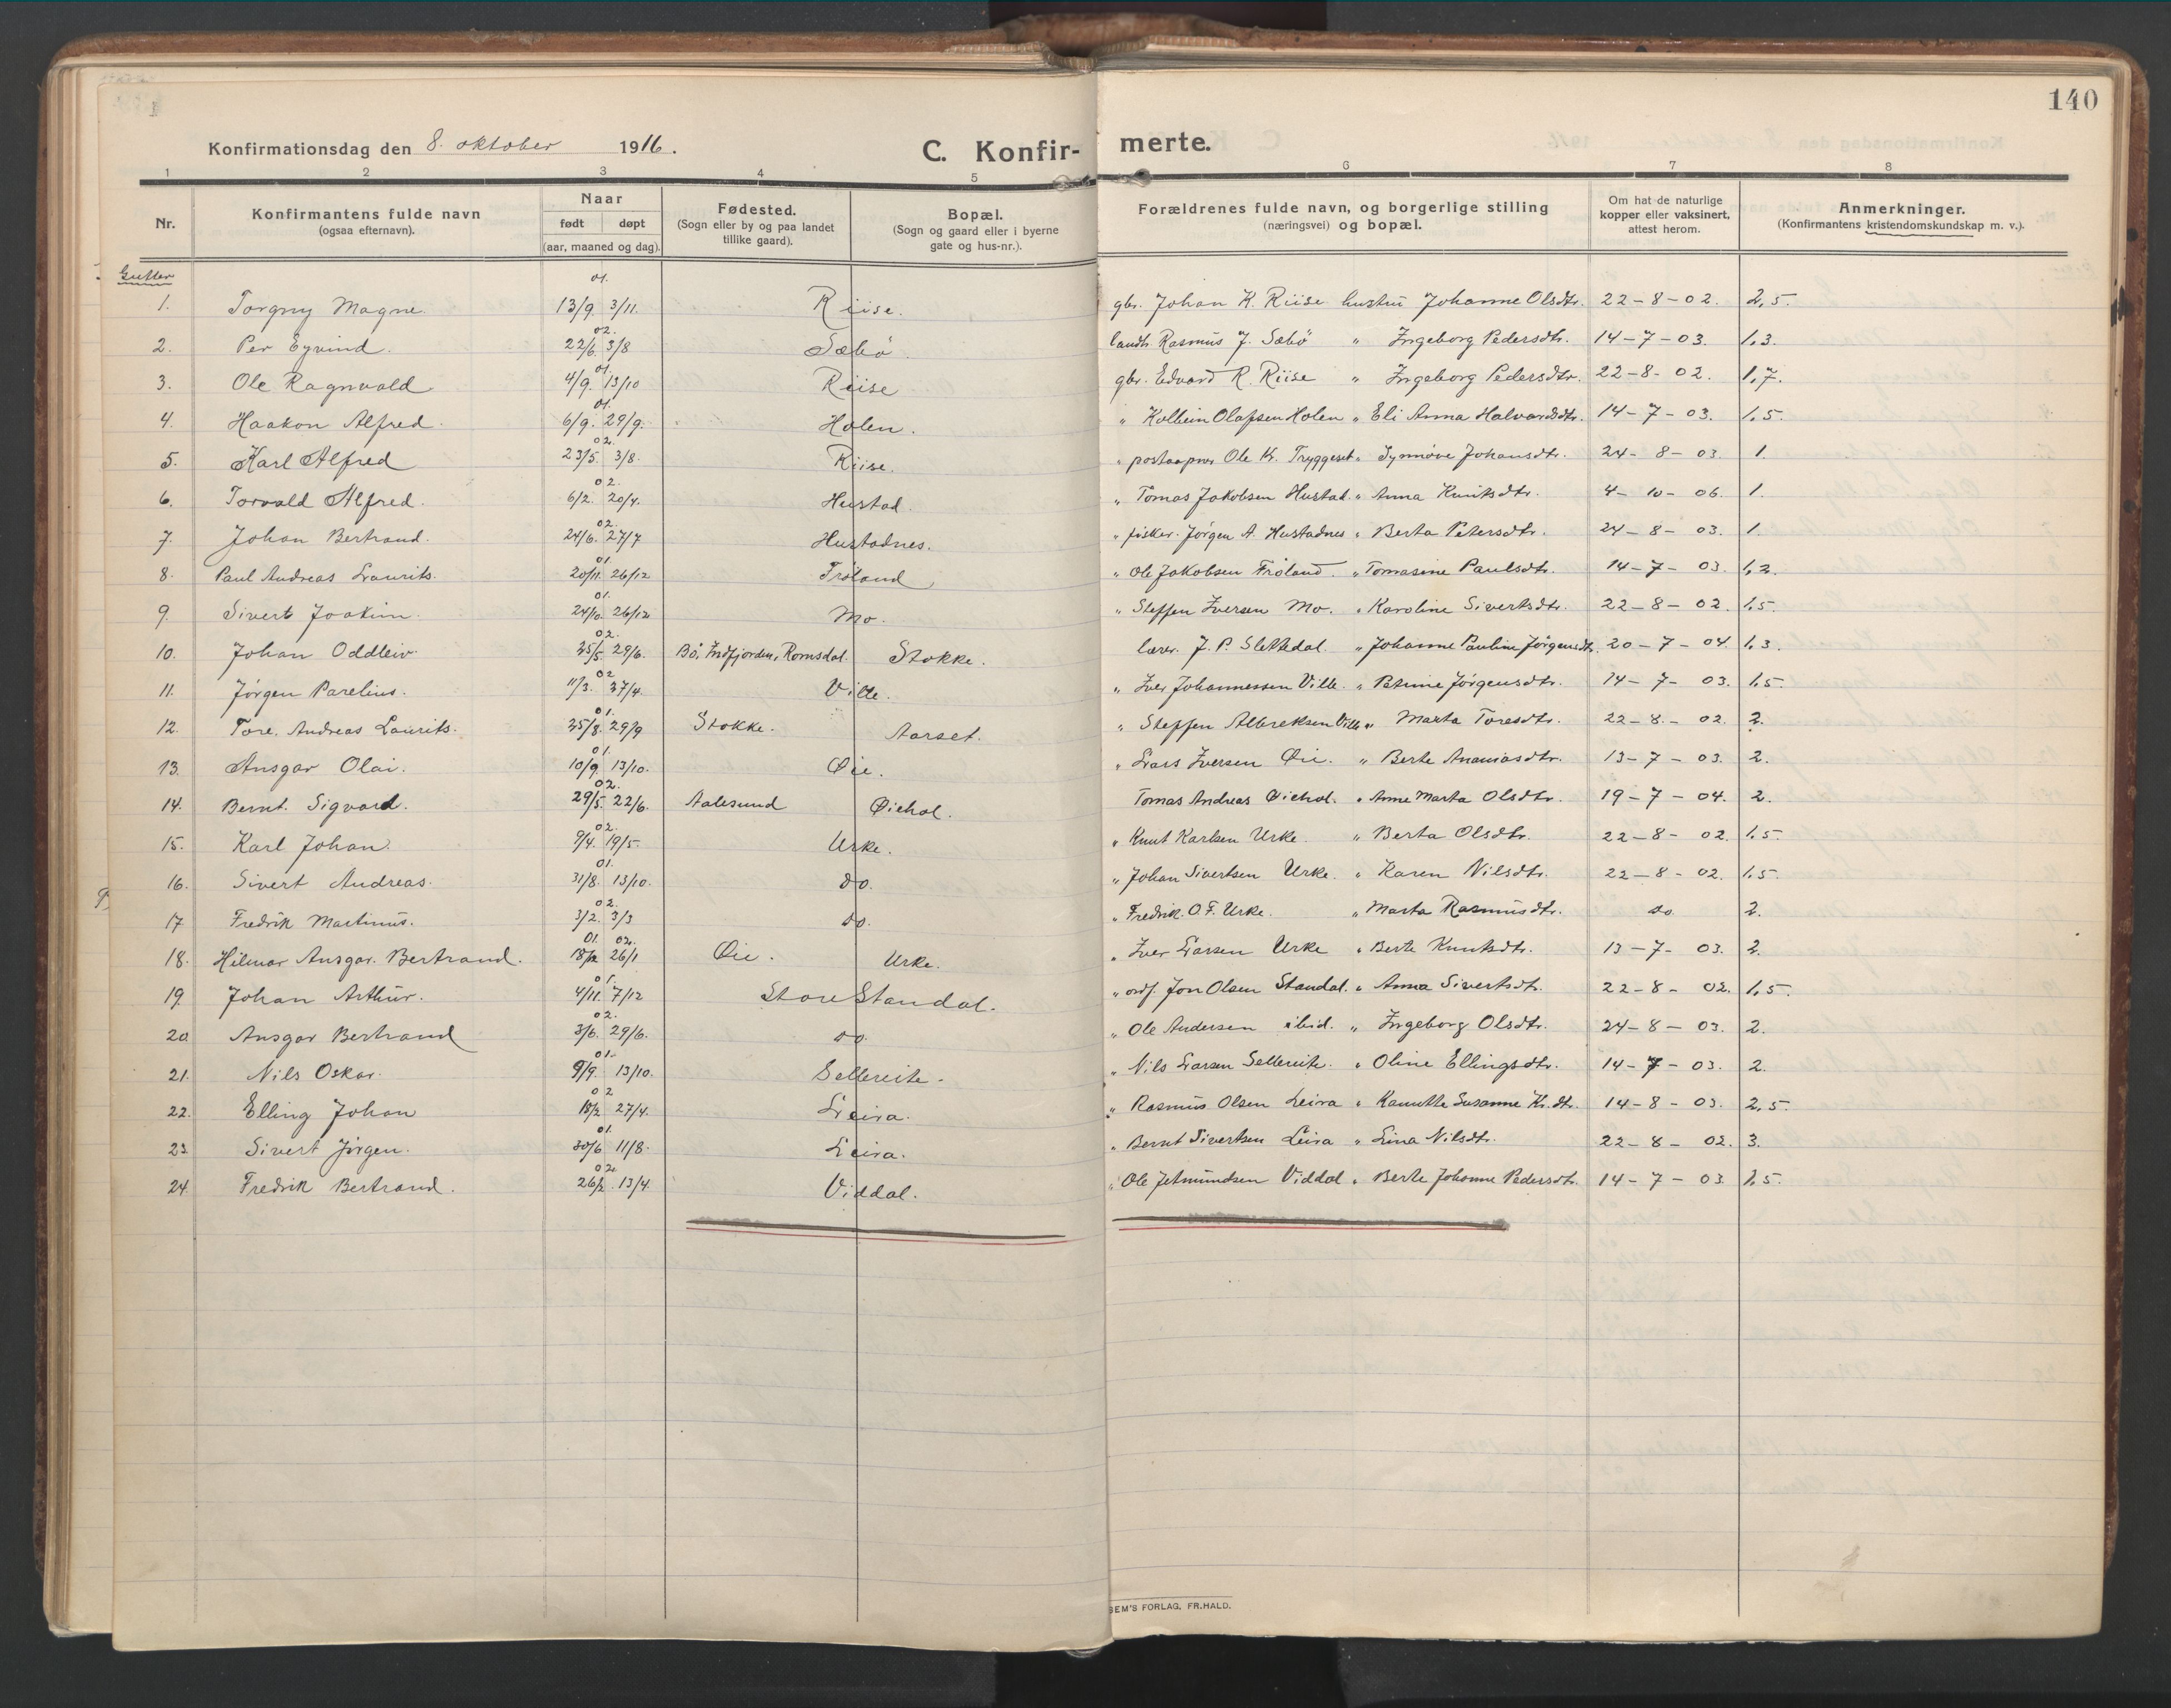 140
Konfirmationsdag den 8. oktober 1916.
C. Konfir- merte.
1 2 3 4 5 6 7 8
Nr.
Konfirmantens fulde navn
(ogsaa efternavn).
Naar
født døpt
(aar, maaned og dag).
Fødested.
(Sogn eller by og paa landet
tillike gaard).
Bopæl.
(Sogn og gaard eller i byerne
gate og hus-nr.).
Forældrenes fulde navn, og borgerlige stilling
(næringsvei) og bopæl.
Om hat de naturlige
kopper eller vaksinert,
attest herom.
Anmerkninger.
(Konfirmantens kristendomskundskap m. v.).
Gutter
1. Torgny Magne. 01. 13/9. 3/11. Riise. gbr. Johan K. Riise hustru Johanne Olsdtr. 22-8-02. 2,5.
2. Per Eyvind. 02. 22/6. 3/8 Sæbø. landh. Rasmus J. Sæbø " Ingeborg Pedersdtr. 14-7-03. 1,3.
3. Ole Ragnvald 01. 4/9. 13/10 Riise gbr. Edvard R. Riise " Ingeborg Pedersdtr. 22-8-02. 1,7.
4. Haakon Alfred. 01. 6/9. 29/9. Holen. " Kolbein Olafsen Holen " Eli Anna Halvardsdtr. 14-7-03. 1,5.
5. Karl Alfred 02. 23/5. 3/8. Riise. " postaapner Ole Kr. Tryggeset " Synnøve Johansdtr. 24-8-03. 1.
6. Torvald Alfred. 02. 6/2. 20/4. Hustad. " Tomas Jakobsen Hustad. " Anna Knutsdtr. 4-10-06. 1.
7. Johan Bertrand. 02. 24/6. 27/7 Hustadnes. " fisker. Jørgen A. Hustadnes " Berta Petersdtr. 24-8-03. 1.
8. Paul Andreas Laurits. 01. 20/11. 26/12 Frøland " Ole Jakobsen Frøland. " Tomasine Paulsdtr. 14-7-03. 1,2.
9. Sivert Joakim. 01. 24/10. 26/12 Mo. " Steffen Iversen Mo. " Karoline Sivertsdtr. 22-8-02. 1,5.
10. Johan Oddleiv. 02. 25/5. 29/6. Bø, Indfjorden, Romsdal. Stokke. lærer. J. P. Slettedal. " Johanne Pauline Jørgensdtr. 20-7-04. 1,3.
11. Jørgen Parelius. 02 11/3. 27/4. Ville. " Iver Johannessen Ville. " Petrine Jørgensdtr. 14-7-03. 1,5.
12. Tore. Andreas Laurits. 01. 25/8. 29/9 Stokke. Aarset. " Steffen Albreksen Ville " Marta Toresdtr. 22-8-02. 2.
13. Ansgar Olai. 01. 10/9. 13/10. Øie. " Lars Iversen Øie. " Berte Ananiasdtr. 13-7-03. 2.
14. Bernt. Sigvard. 02. 29/5. 22/6. Aalesund Øiehol. Tomas Andreas Øiehol. " Anne Marta Olsdtr. 19-7-04. 2.
15. Karl Johan. 02. 9/4. 19/5. Urke. " Knut Karlsen Urke. " Berta Olsdtr. 22-8-02. 1,5.
16. Sivert Andreas. 01. 31/8. 13/10. do. " Johan Sivertsen Urke. " Karen Nilsdtr. 22-8-02. 1,5.
17 Fredrik Martinus. 02. 3/2. 3/3 do. " Fredrik. O. F. Urke. " Marta Rasmusdtr. do 2.
18. Hilmar Ansgar. Bertrand. 01. 02. 18/12 26/1 Øie. Urke. " Iver Larsen Urke " Berte Knutsdtr. 13-7-03. 2.
19. Johan Arthur. 01. 4/11. 7/12 Store Standal. " ordf. Jon Olsen Standal. " Anna Sivertsdtr. 22-8-02. 1,5.
20 Ansgar Bertrand 02. 3/6. 29/6. do. " Ole Andersen ibid. " Ingeborg Olsdtr. 24-8-03. 2.
21. Nils Oskar. 01. 9/9. 13/10. Sellereite. " Nils Larsen Sellereite. " Oline Ellingsdtr. 14-7-03. 2.
22. Elling Johan 02 18/2 27/4. Leira. " Rasmus Olsen Leira " Kanutte Susanne Kr.dtr. 14-8-03. 2,5.
23. Sivert Jørgen. 01. 30/6 11/8. Leira. " Bernt Sivertsen Leira " Lina Nilsdtr. 22-8-02. 3.
24. Fredrik Bertrand. 02 26/2. 13/4. Viddal. " Ole Jetmundsen Viddal " Berte Johanne Pedersdtr. 14-7-03 1,5.
SEM'S FORLAG, FR. HALD.